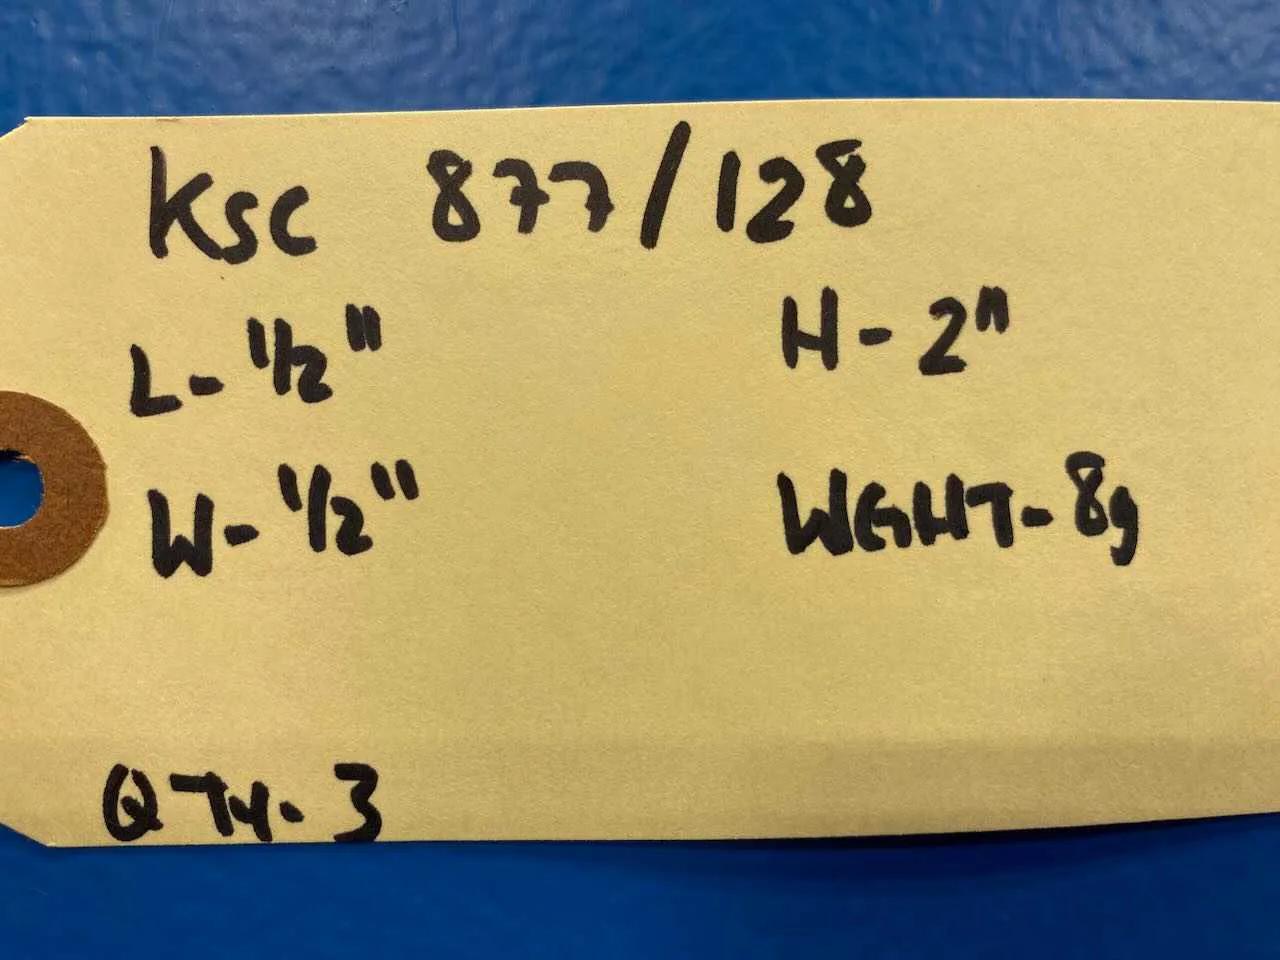 KSC 877/128
L-1/2" H-2"
W-1/2" WGHT-8g
QTY-3